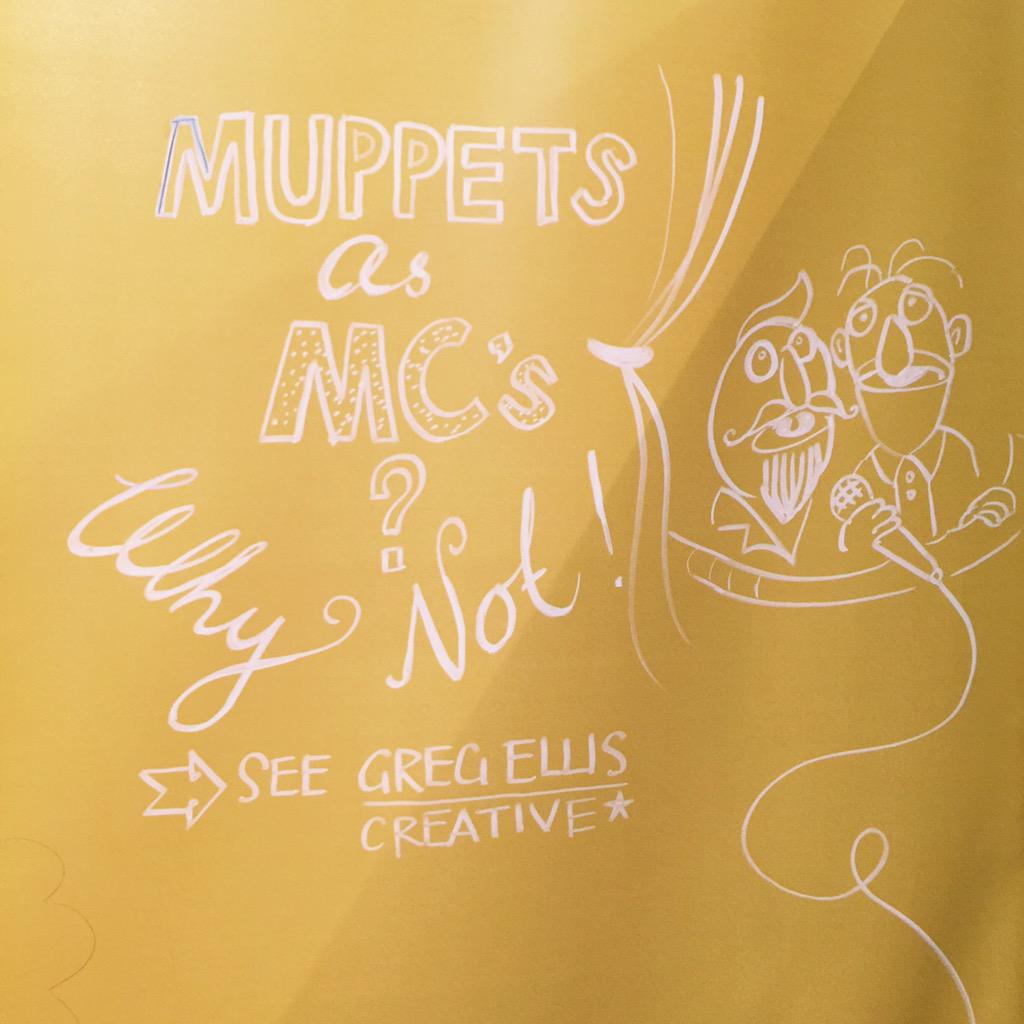 MUPPETS
as
MC's
?
Why Not!
SEE GREG ELLIS
CREATIVE